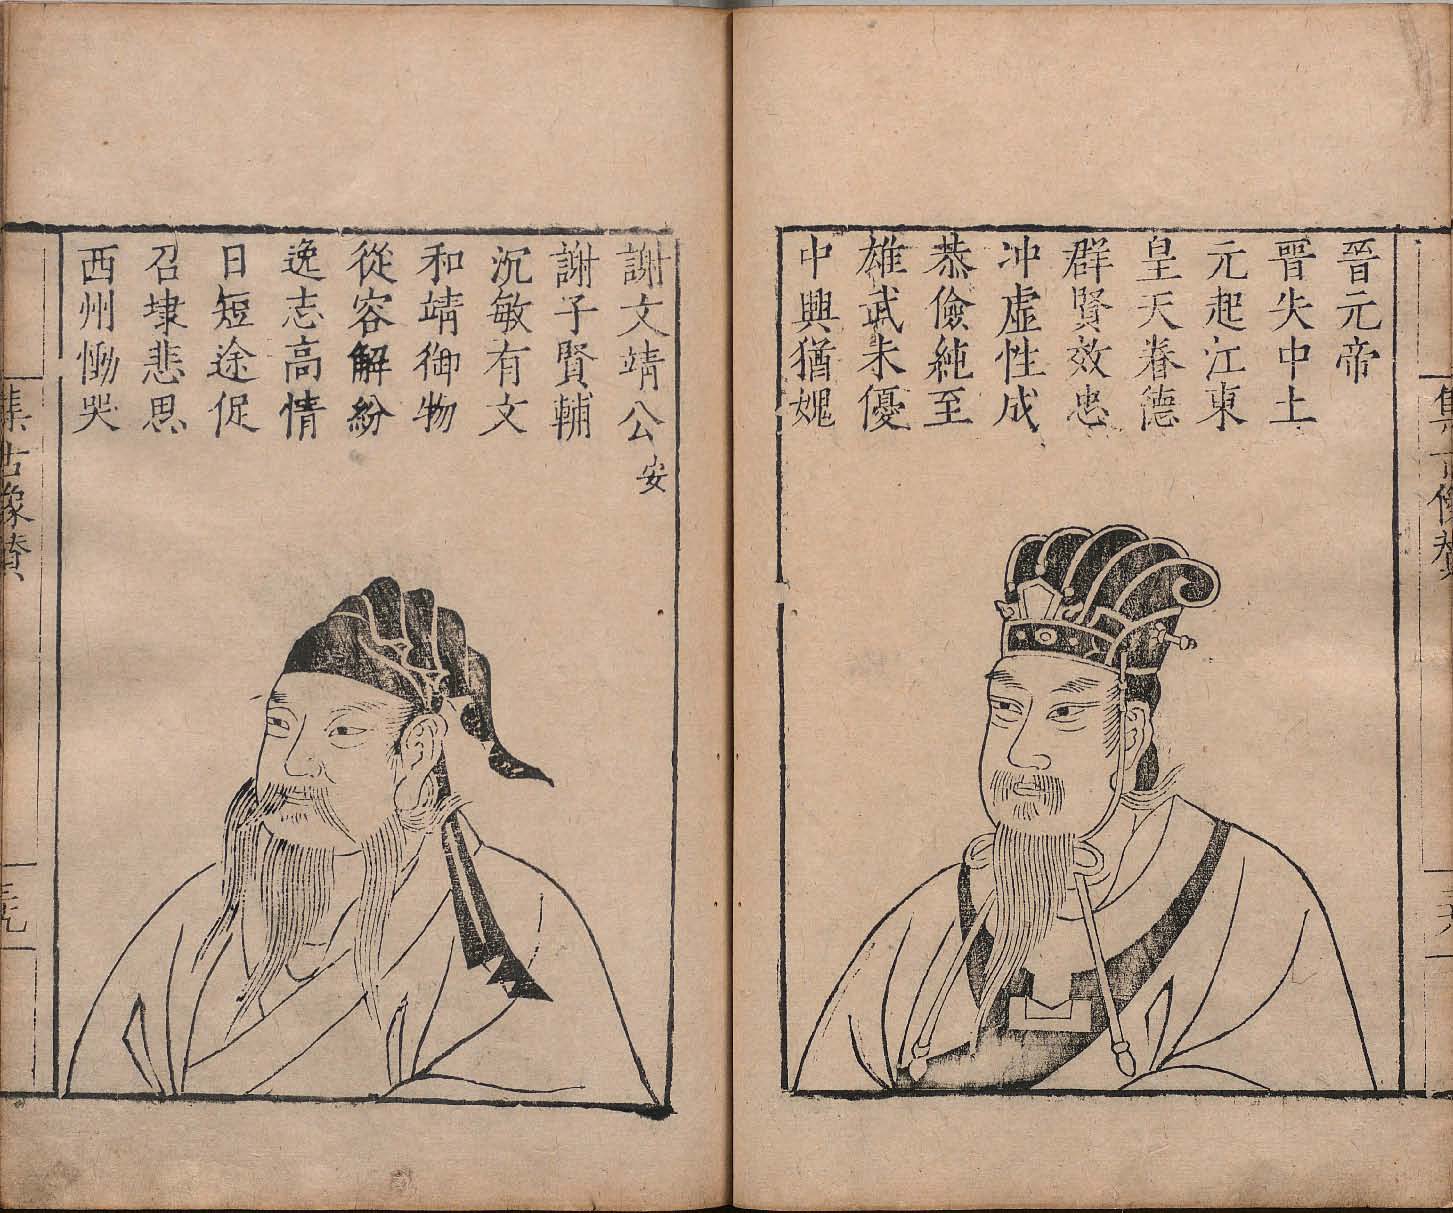 晉元帝
晉失中土
元起江東
皇天眷德
群賢效忠
冲虛性成
恭儉純至
雄武未優
中興猶媿
謝文靖公安
謝子賢輔
沉敏有文
和靖御物
從容解紛
逸志高情
日短途促
召埭悲思
西州慟哭
集古像贊